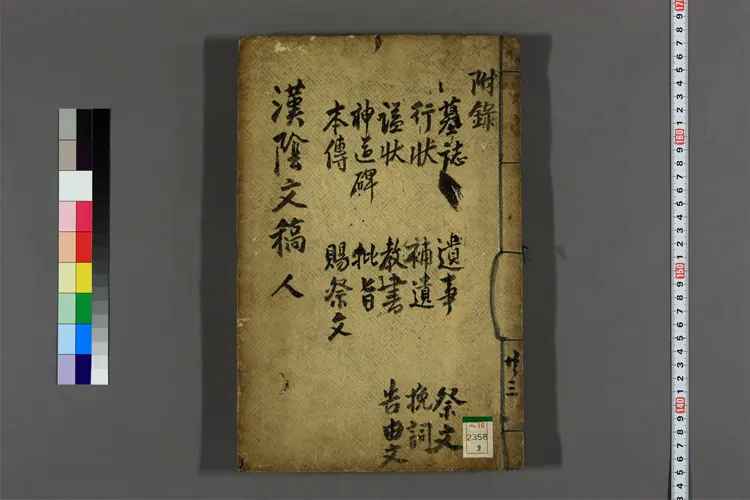 附錄
墓誌 遺事 祭文
行狀 補遺 挽詞
諡狀 教書 告由文
神道碑 批旨
本傳 賜祭文
漢陰文稿 人
2358